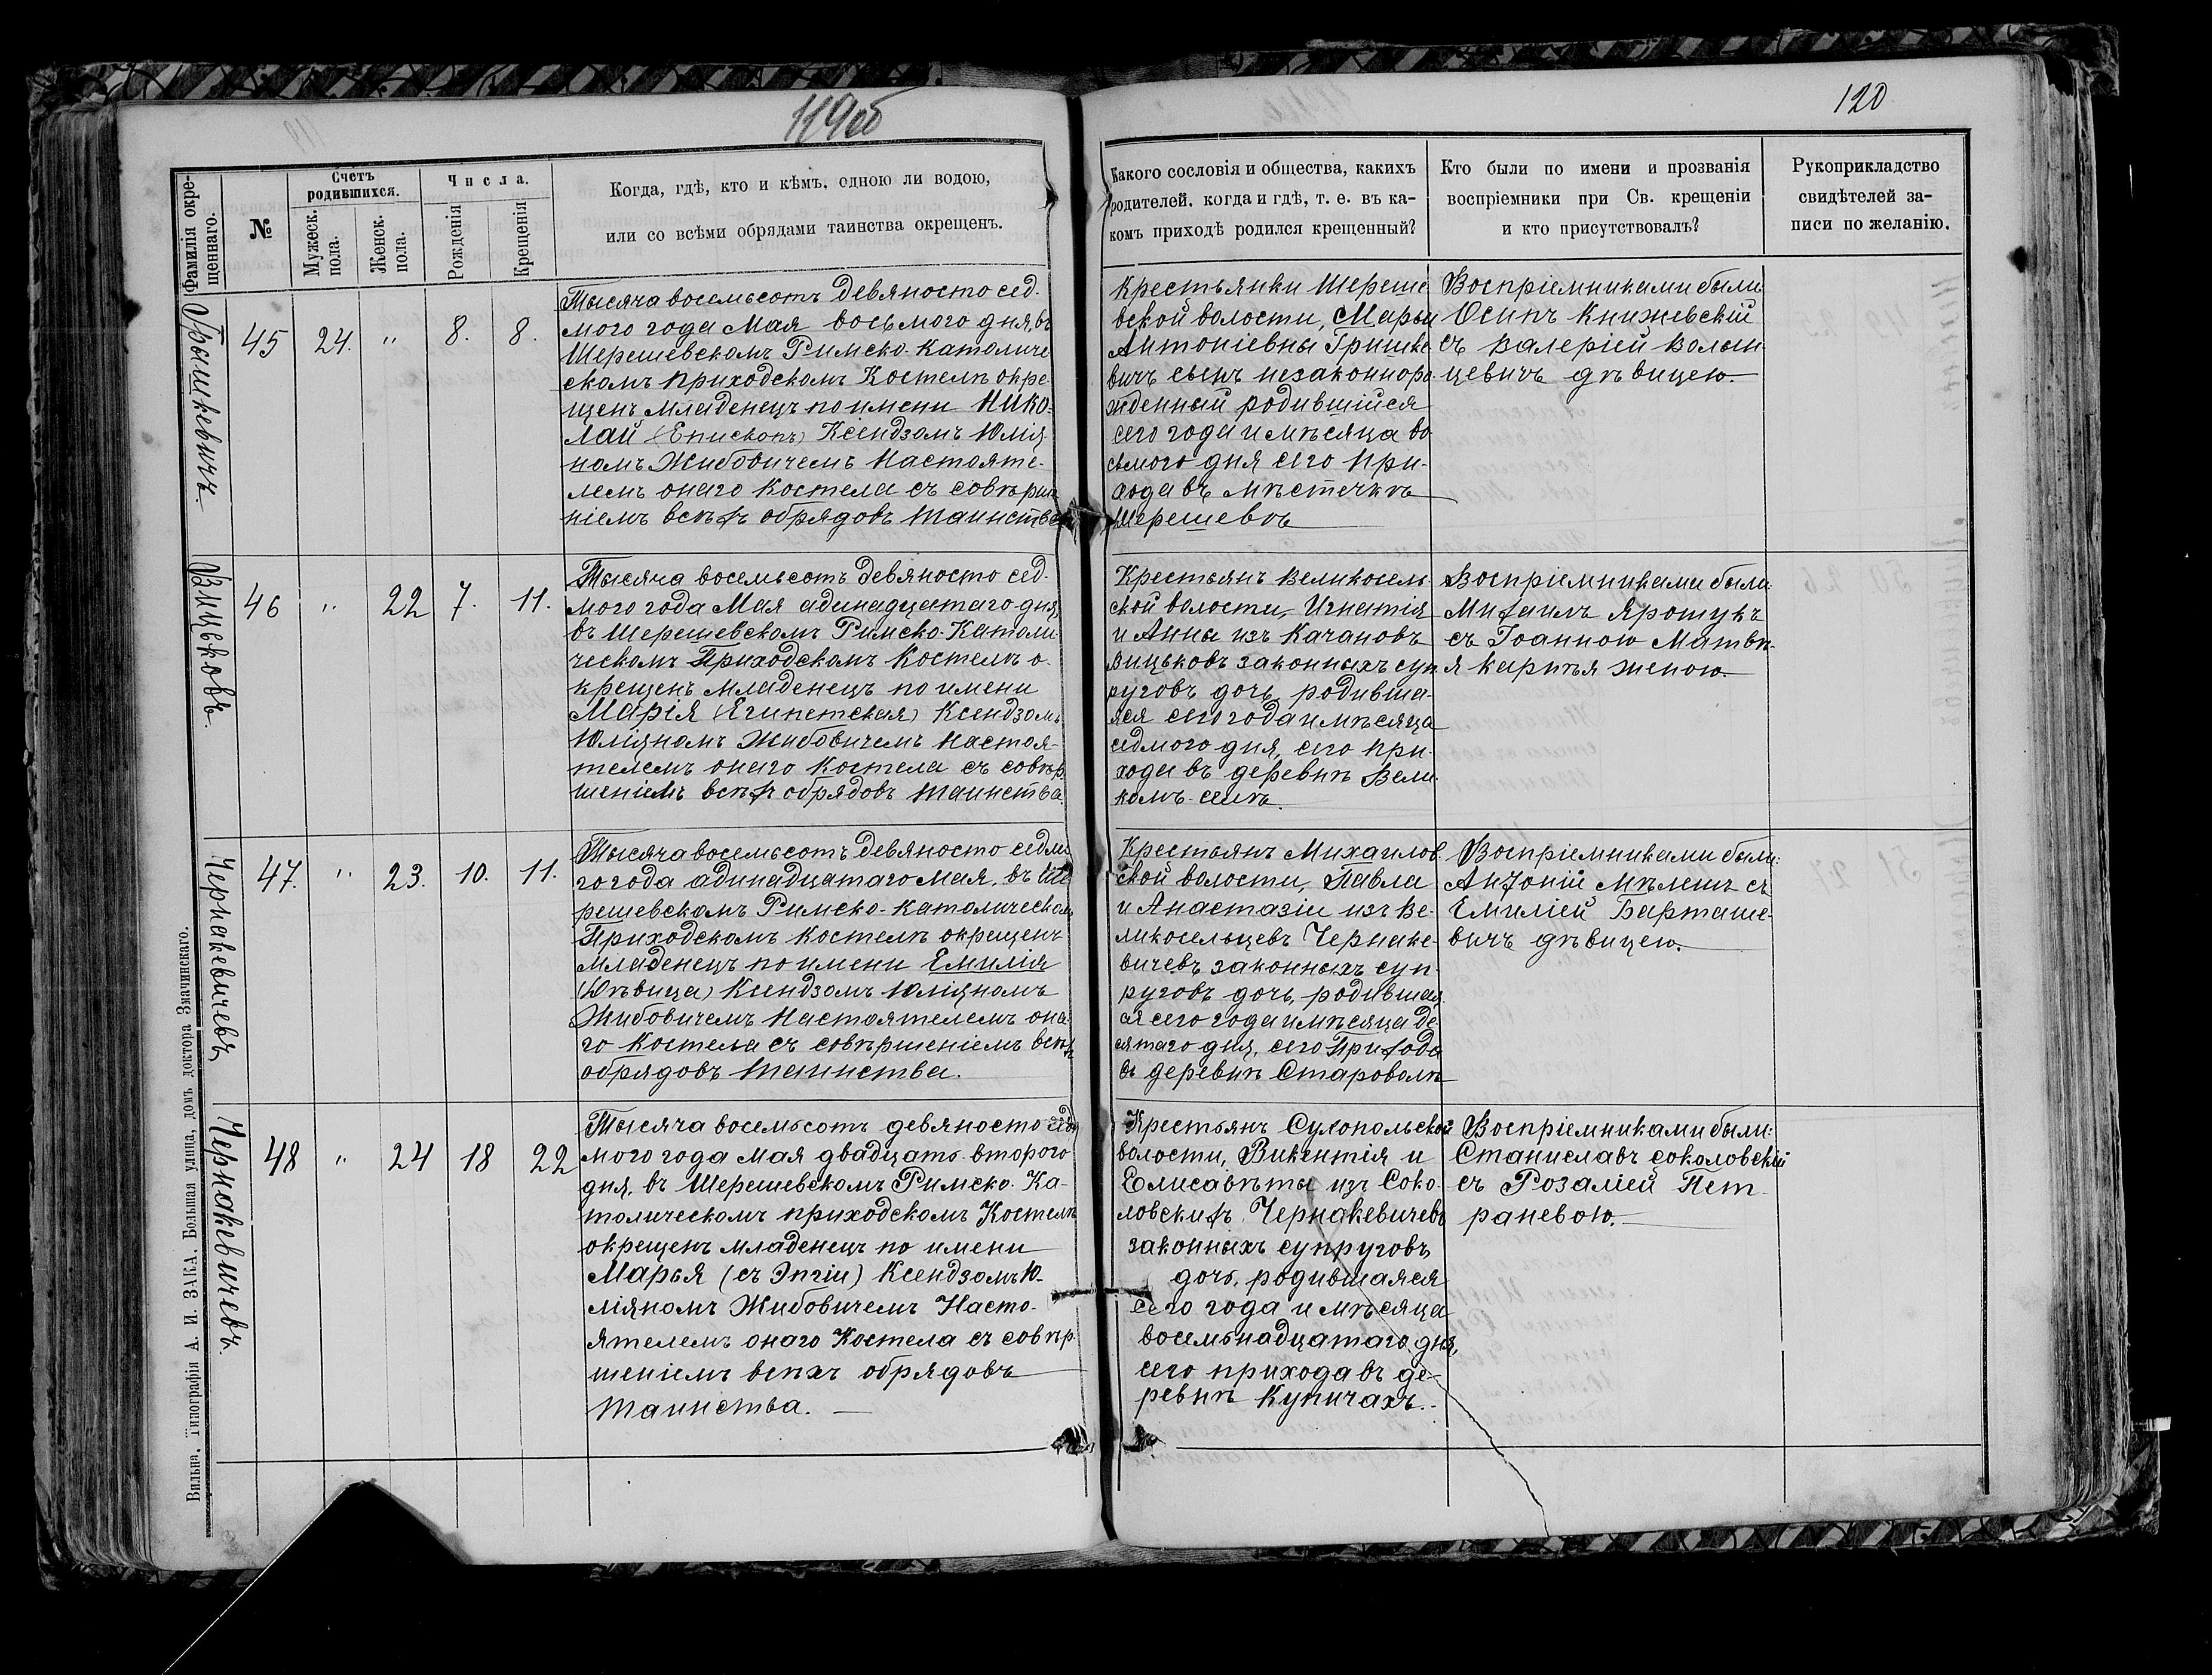 119об
120
Фамилія окре-
щеннаго.
№
Счетъ
родившихся.
Мужеск.
пола.
Женск.
пола.
Числа.
Рожденія
Крещенія
Когда, гдѣ, кто и кѣмъ, одною ли водою,
или со всѣми обрядами таинства окрещенъ.
Какого сословія и общества, какихъ
родителей, когда и гдѣ, т. е. въ ка-
комъ приходѣ родился крещенный?
Кто были по имени и прозванія
воспріемники при Св. крещеніи
и кто присутствовалъ?
Рукоприкладство
свидѣтелей за-
писи по желанію.
Грышкевичъ
45 24. " 8. 8.
Тысяча восемьсотъ девяносто сед-
мого года Мая восьмого дня, въ
Шерешевскомъ Римско-Католиче
скомъ приходскомъ Костелѣ окре-
щенъ младенецъ по имени Нико-
лай (Епископъ) Ксендзомъ Юлія-
номъ Жибовичемъ Настояте-
лемъ онаго Костела съ совѣрше
ніемъ всѣхъ обрядовъ Таинства
Крестьянки Шереше
вской волости, Марьи
Антоніевны Гришке
вичъ сынъ незаконноро
жденный родившійся
сего года и мѣсяца во
сьмого дня сего при-
хода въ мѣстечкѣ
Шерешевѣ
Воспріемниками были
Осипъ Книжевскій
съ Валеріей Волын-
цевичъ дѣвицею.
Вицьковъ.
46 " 22 7. 11.
Тысяча восемьсотъ девяносто сед-
мого года Мая адинадцатаго дня,
въ Шерешевскомъ Римско-Католи-
ческомъ Приходскомъ Костелѣ о-
крещенъ младенецъ по имени
Марія (Египетская) Ксендзомъ
Юліяномъ Жибовичемъ Настоя-
телемъ онаго Костела съ совѣр-
шеніемъ всѣхъ обрядовъ Таинства.
Крестьянъ Великосель-
ской волости, Игнатія
и Анны изъ Качановъ
Вицьковъ законныхъ суп
руговъ дочь, родивша-
яся сего года и мѣсяца
седмого дня, сего при-
хода въ деревнѣ Вели-
комъ-селѣ.
Воспріемниками были:
Михаилъ Ярошукъ
съ Іоанною Матвѣ-
я Карпѣя женою.
Чернакевичевъ
47. " 23. 10. 11.
Тысяча восемьсотъ девяносто седмо
го года адинадцатаго Мая, въ Ше
решевскомъ Римско-Католическомъ
Приходскомъ Костелѣ окрещенъ
младенецъ по имени Емилія
(Дѣвица) Ксендзомъ Юліяномъ
Жибовичемъ Настоятелемъ она-
го Костела съ совѣршеніемъ всѣхъ
обрядовъ Таинства.
Крестьянъ Михаилов
ской волости, Павла
и Анастазіи изъ Ве-
ликосельцевъ Чернаке-
вичевъ законныхъ суп-
руговъ дочь, родившая
ся сего года и мѣсяца де-
сятаго дня, сего Прихода
въ деревнѣ Староволѣ
Воспріемниками были:
Антоній Мѣлешъ съ
Емиліей Барташе-
вичъ дѣвицею.
Чернакевичевъ.
48 " 24 18 22
Тысяча восемьсотъ девяносто сед
мого года мая двадцать-второго
дня, въ Шерешевскомъ Римско-Ка-
толическомъ приходскомъ Костелѣ
окрещенъ младенецъ по имени
Марья (съ Эпгіи) Ксендзомъ Ю-
ліяномъ Жибовичемъ Насто-
ятелемъ онаго Костела съ совѣр-
шеніемъ всѣхъ обрядовъ
Таинства.
Крестьянъ Сухопольской
волости, Викентія и
Елисавѣты изъ Соко-
ловскихъ Чернакевичевъ
законныхъ супруговъ
дочь, родившаяся
сего года и мѣсяца
восемьнадцатаго дня,
сего прихода въ де-
ревнѣ Купичахъ.
Воспріемниками были:
Станиславъ Соколовскій
съ Розаліей Пет-
раневою.
Вильна. Типографія А. И. ЗАКА. Большая улица, домъ доктора Значинскаго.